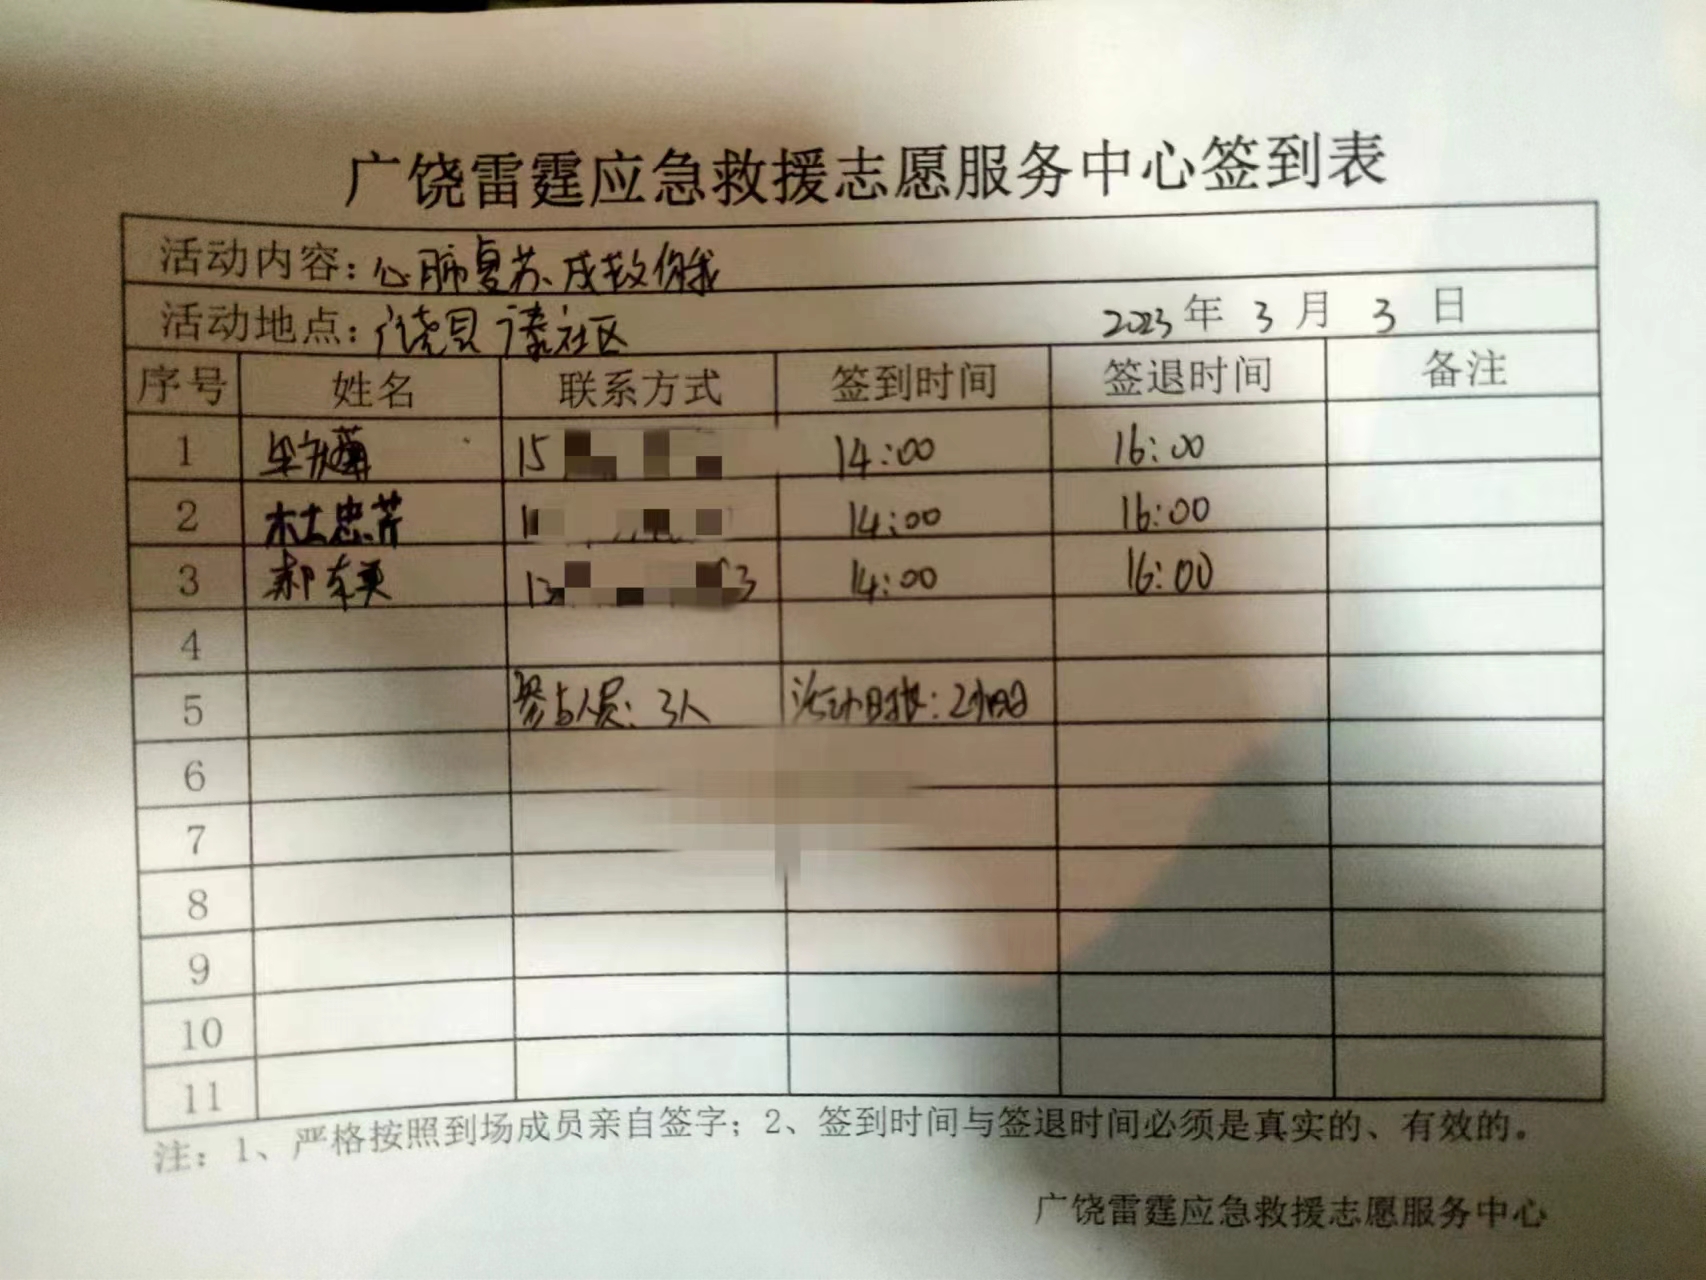 广饶雷霆应急救援志愿服务中心签到表
活动内容：心肺复苏、成救你我
活动地点：广饶县 社区 2023年3月3日
序号 姓名 联系方式 签到时间 签退时间 备注
1 15 14:00 16:00
2 杜忠芹 1 14:00 16:00
3 郝东英 13 3 14:00 16:00
4
5 参与人员：3人 活动时长：2小时
6
7
8
9
10
11
注：1、严格按照到场成员亲自签字；2、签到时间与签退时间必须是真实的、有效的。
广饶雷霆应急救援志愿服务中心